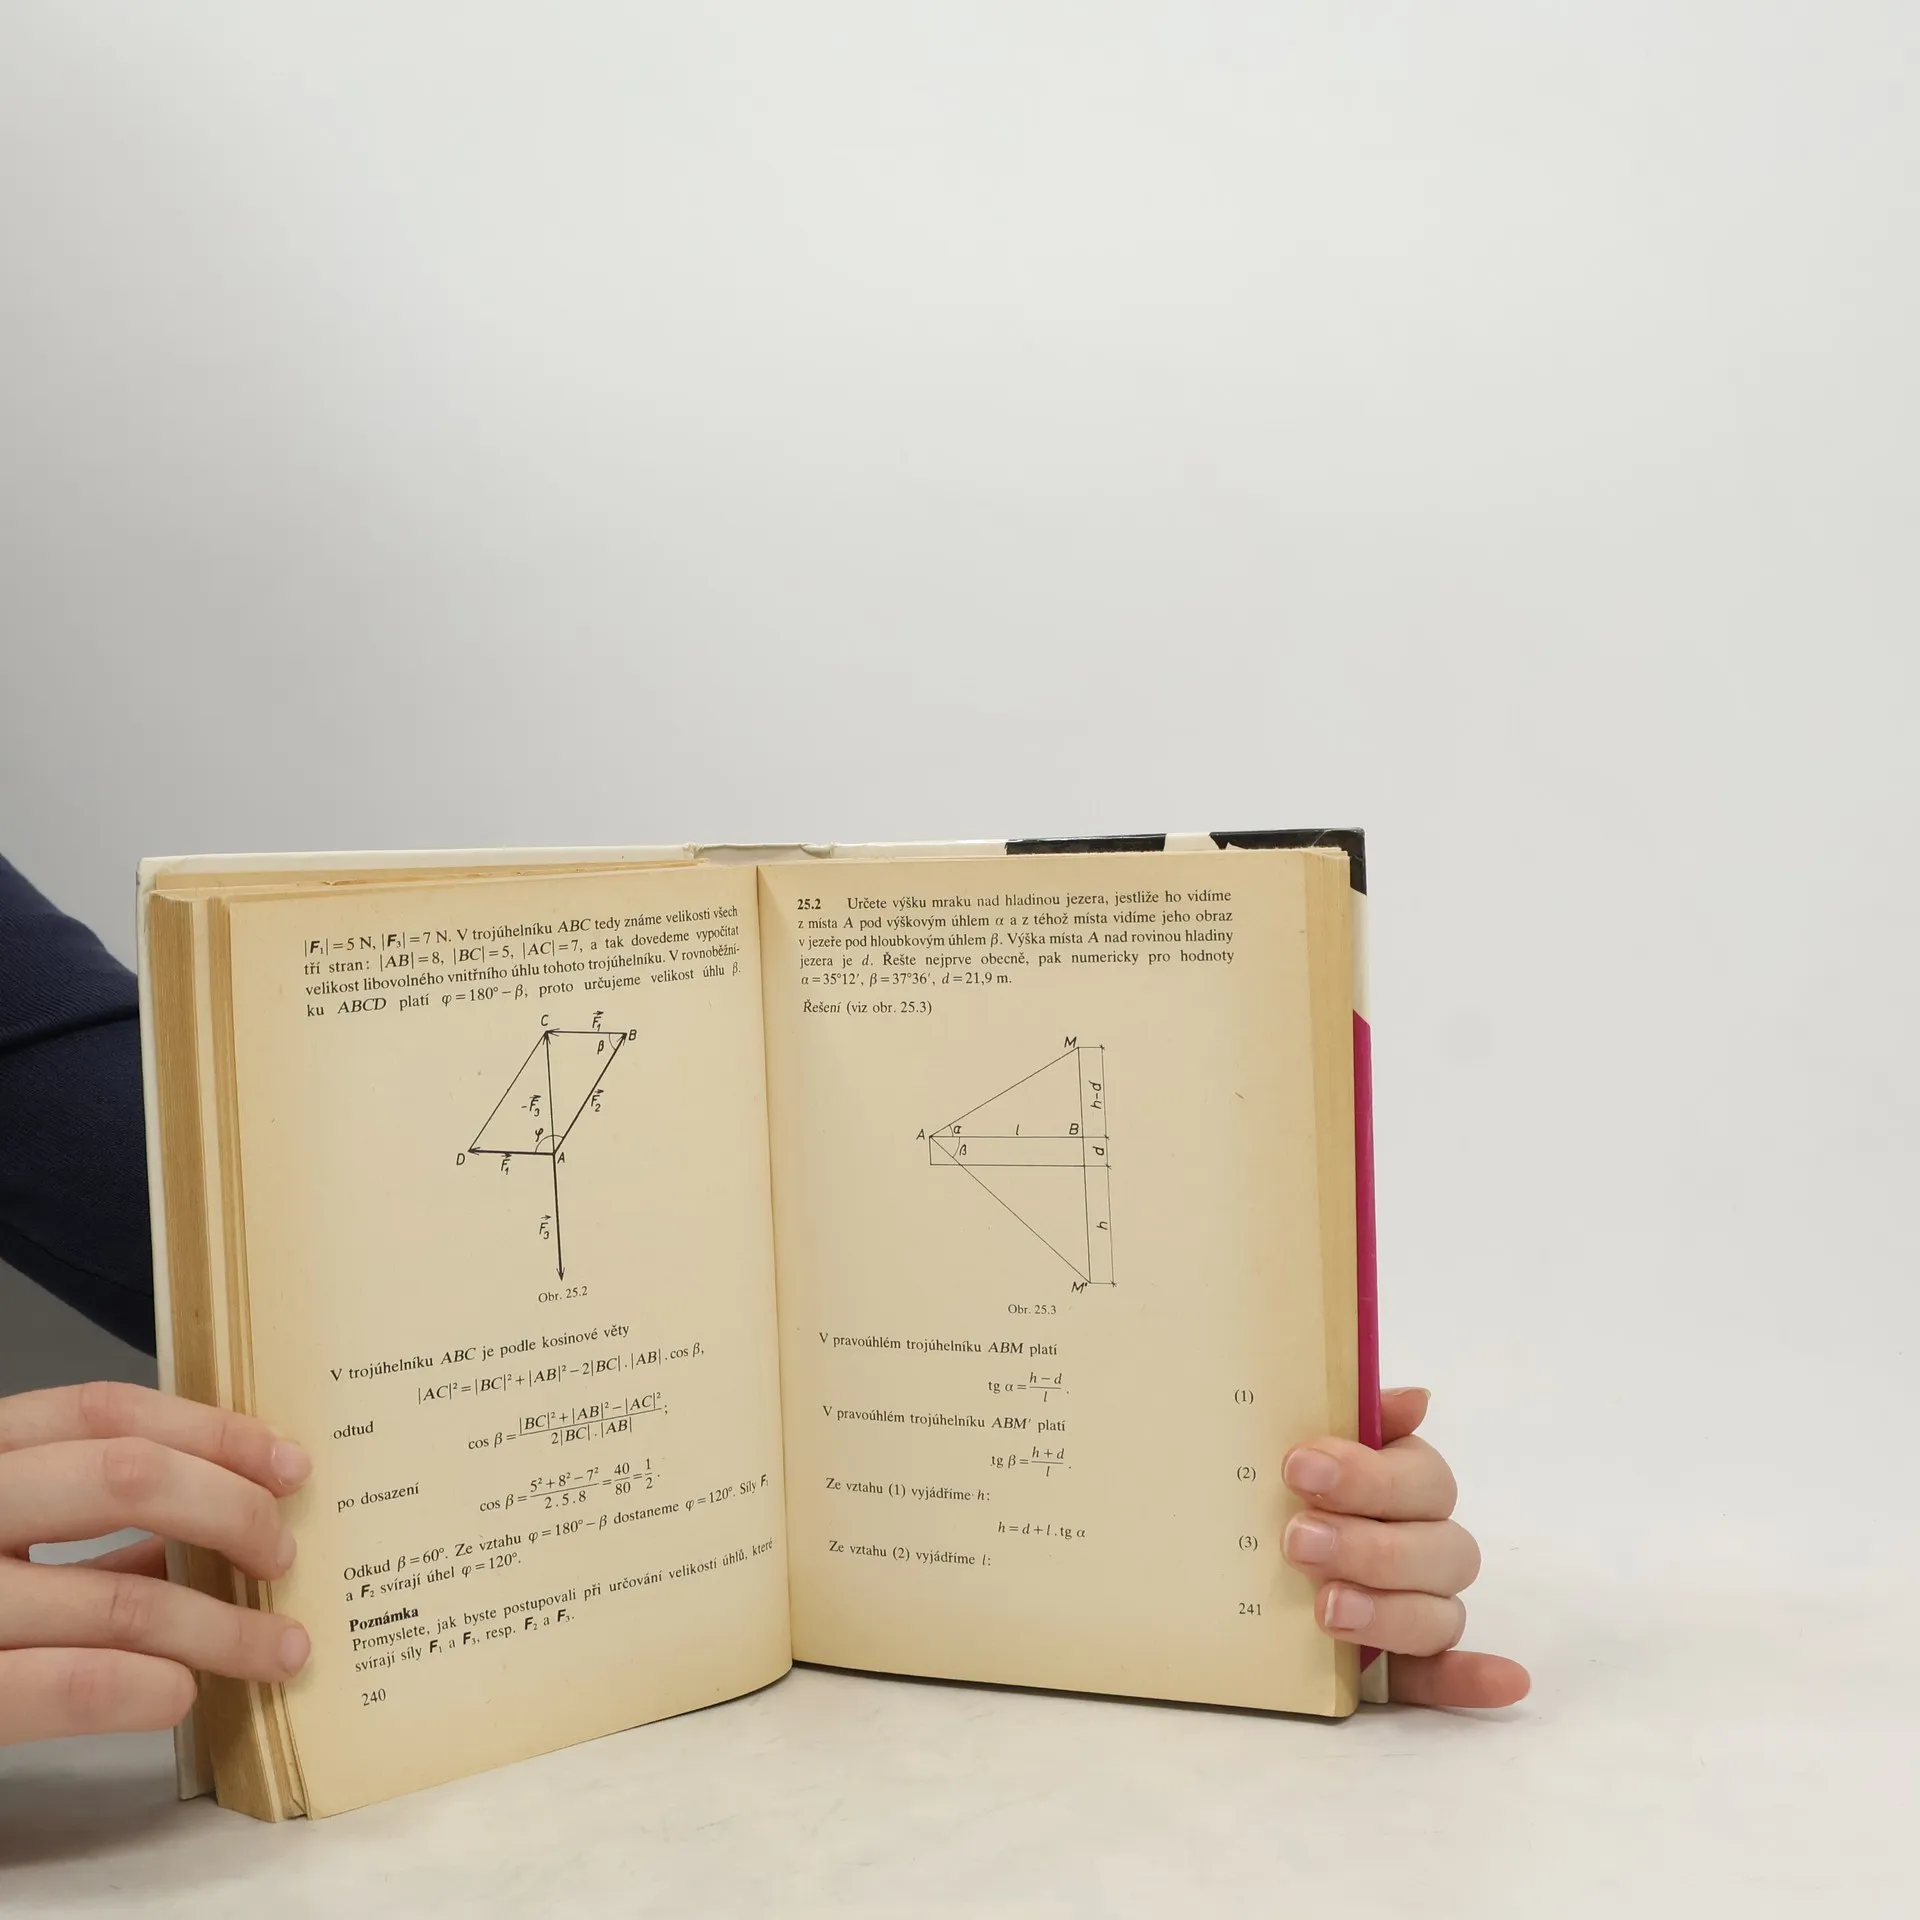 |F₁| = 5 N, |F₃| = 7 N. V trojúhelníku ABC tedy známe velikosti všech
tří stran: |AB| = 8, |BC| = 5, |AC| = 7, a tak dovedeme vypočítat
velikost libovolného vnitřního úhlu tohoto trojúhelníku. V rovnoběžní-
ku ABCD platí φ = 180° − β, proto určujeme velikost úhlu β.
C
F₁
B
β
-F₃
F₂
φ
D
F₁
A
F₃
Obr. 25.2
V trojúhelníku ABC je podle kosinové věty
|AC|² = |BC|² + |AB|² − 2|BC| . |AB| . cos β,
odtud
cos β = |BC|² + |AB|² − |AC|² / 2|BC| . |AB| ;
po dosazení
cos β = 5² + 8² − 7² / 2 . 5 . 8 = 40/80 = 1/2 .
Odkud β = 60°. Ze vztahu φ = 180° − β dostaneme φ = 120°. Síly F₁
a F₂ svírají úhel φ = 120°.
Poznámka
Promyslete, jak byste postupovali při určování velikostí úhlů, které
svírají síly F₁ a F₃, resp. F₂ a F₃.
240
25.2 Určete výšku mraku nad hladinou jezera, jestliže ho vidíme
z místa A pod výškovým úhlem α a z téhož místa vidíme jeho obraz
v jezeře pod hloubkovým úhlem β. Výška místa A nad rovinou hladiny
jezera je d. Řešte nejprve obecně, pak numericky pro hodnoty
α = 35°12′, β = 37°36′, d = 21,9 m.
Řešení (viz obr. 25.3)
M
h-d
A
α
l
B
β
d
h
M'
Obr. 25.3
V pravoúhlém trojúhelníku ABM platí
tg α = h − d / l . (1)
V pravoúhlém trojúhelníku ABM′ platí
tg β = h + d / l . (2)
Ze vztahu (1) vyjádříme h:
h = d + l . tg α (3)
Ze vztahu (2) vyjádříme l:
241